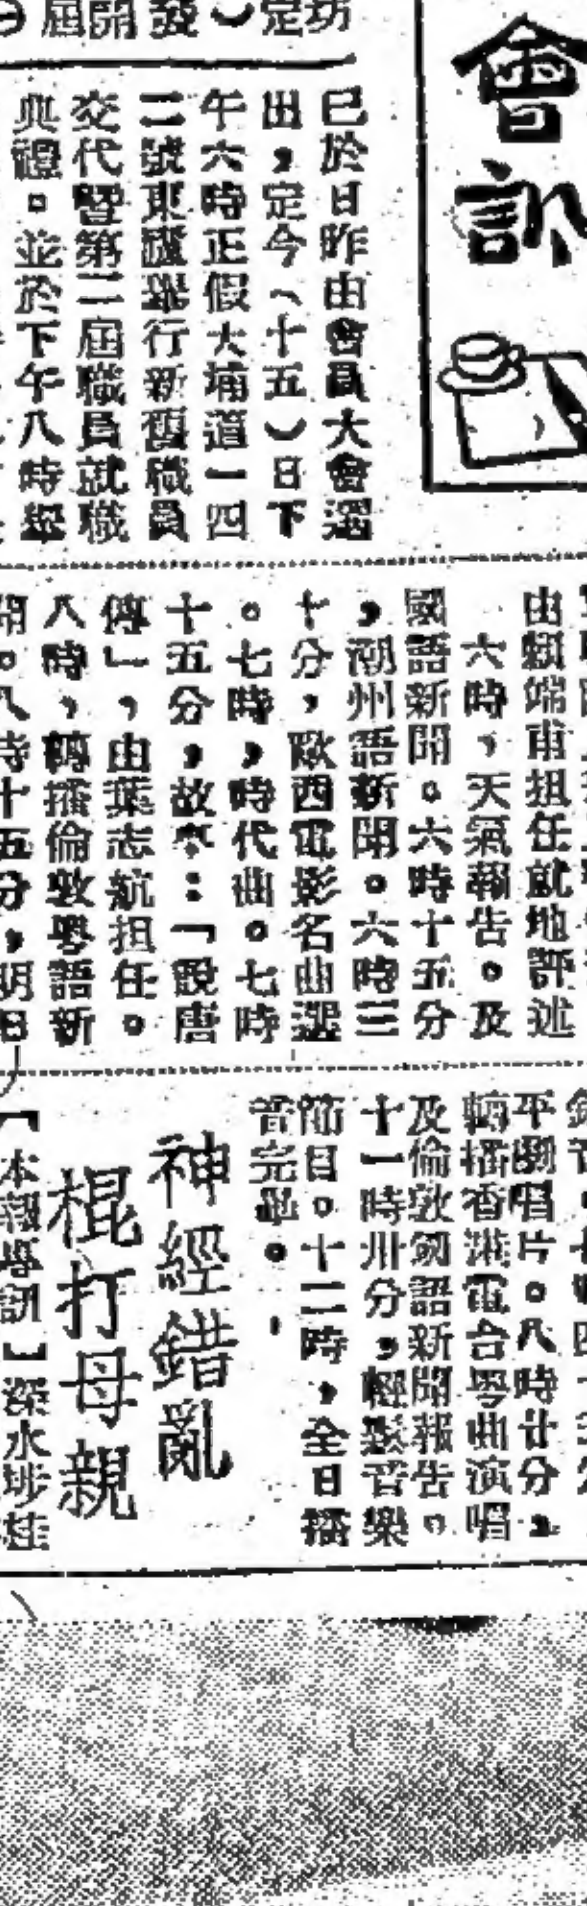 會訊
定坊
發
開
屆
已於日昨由會員大會選
出，定今（十五）日下
午六時正假大埔道一四
二號東廬舉行新舊職員
交代暨第二屆職員就職
典禮。並於下午八時舉
由賴端甫担任就地評述
六時，天氣報告。及
國語新聞。六時十五分
，潮州語新聞。六時三
十分，歐西電影名曲選
。七時，時代曲。七時
十五分，故事：「說唐
傳」，由葉志航担任。
八時，轉播倫敦粵語新
聞。八時十五分，明日
平劇唱片。八時廿分，
轉播香港電台粵曲演唱
及倫敦國語新聞報告。
十一時卅分，輕鬆音樂
節目。十二時，全日播
音完畢。
神經錯亂
棍打母親
【本報專訊】深水埗桂